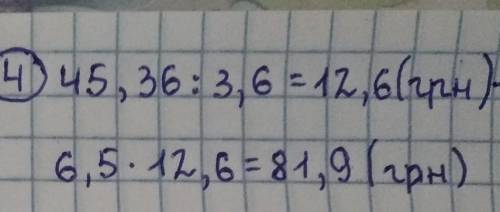 4) 45,36 : 3,6 = 12,6 (грн) -
6,5 · 12,6 = 81,9 (грн)